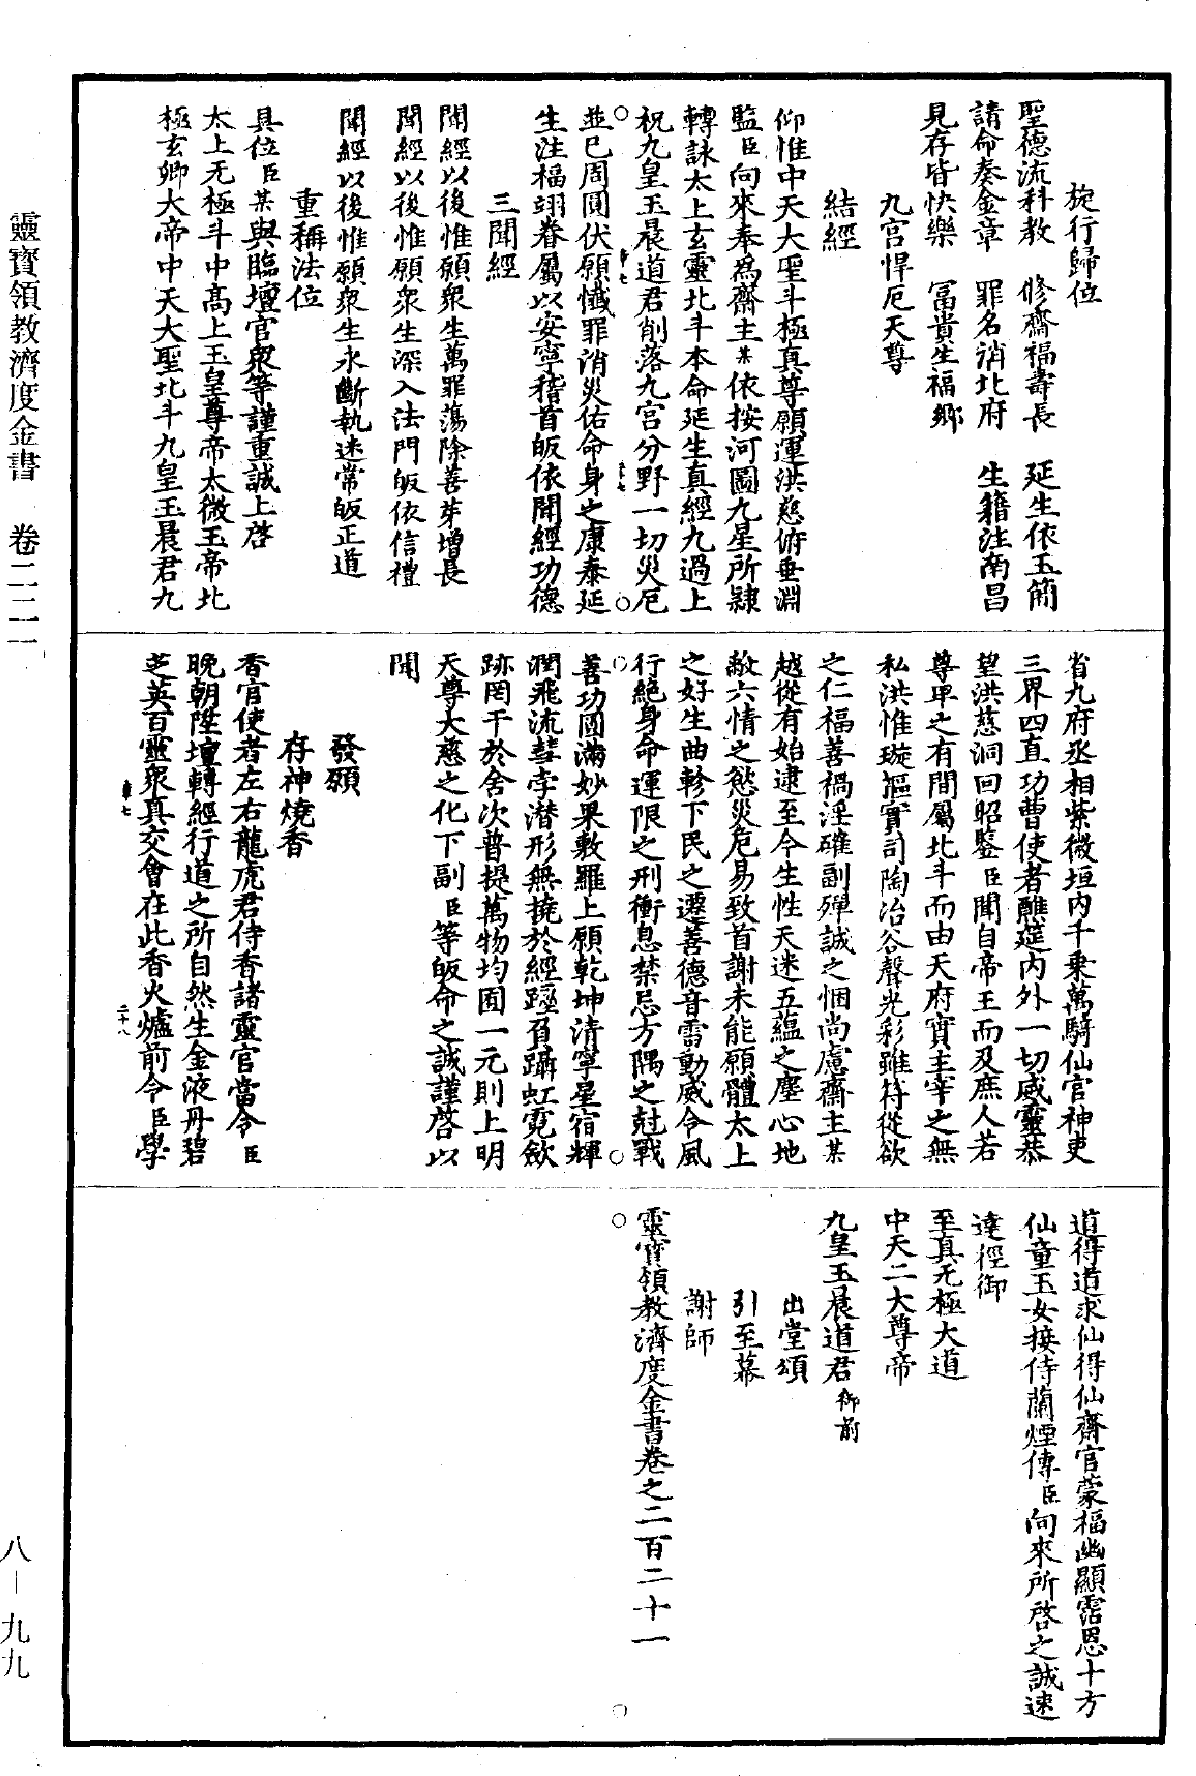 旋行歸位
聖德流科教　修齋福壽長　延生依玉簡
請命奏金章　罪名消北府　生籍注南昌
見存皆快樂　富貴生福鄉
九宮悍厄天尊
結經
仰惟中天大聖斗極真尊願運洪慈俯垂淵
監臣向來奉爲齋主某依按河圖九星所隸
轉詠太上玄靈北斗本命延生真經九過上
祝九皇玉晨道君削落九宮分野一切災厄
並已周圓伏願懺罪消災佑命身之康泰延
生注福翊眷屬以安寧稽首皈依聞經功德
三聞經
聞經以後惟願衆生萬罪蕩除善芽增長
聞經以後惟願衆生深入法門皈依信禮
聞經以後惟願衆生永斷執迷常皈正道
重稱法位
具位臣某與臨壇官衆等謹重誠上啓
太上无極斗中高上玉皇尊帝太微玉帝北
極玄卿大帝中天大聖北斗九皇玉晨君九
省九府丞相紫微垣內千乘萬騎仙官神吏
三界四直功曹使者醮筵內外一切威靈恭
望洪慈洞回昭鑒臣聞自帝王而及庶人若
尊卑之有間屬北斗而由天府實主宰之無
私洪惟璇樞實司陶冶谷聲光彩雖符從欲
之仁福善禍淫確副殫誠之悃尚慮齋主某
越從有始逮至今生性天迷五蘊之塵心地
敝六情之慾災危易致首謝未能願體太上
之好生曲軫下民之遷善德音雷動威令風
行絕身命運限之刑衝息禁忌方隅之尅戰
善功圓滿妙果敷羅上願乾坤清寧星宿輝
潤飛流彗孛潜形無撓於經躔㸔躡虹霓斂
跡罔干於舍次普提萬物均囿一元則上明
天尊大慈之化下副臣等皈命之誠謹啓以
聞
發願
存神燒香
香官使者左右龍虎君侍香諸靈官當令臣
晚朝陞壇轉經行道之所自然生金液丹碧
芝英百靈衆真交會在此香火爐前令臣學
道得道求仙得仙齋官蒙福幽顯霑恩十方
仙童玉女接侍蘭煙傳臣向來所啓之誠速
達徑御
至真无極大道
中天二大尊帝
九皇玉晨道君御前
出堂頌
引至幕
謝師
靈寶領教濟度金書卷之二百二十一
靈寶領教濟度金書　卷二二一
八－九九